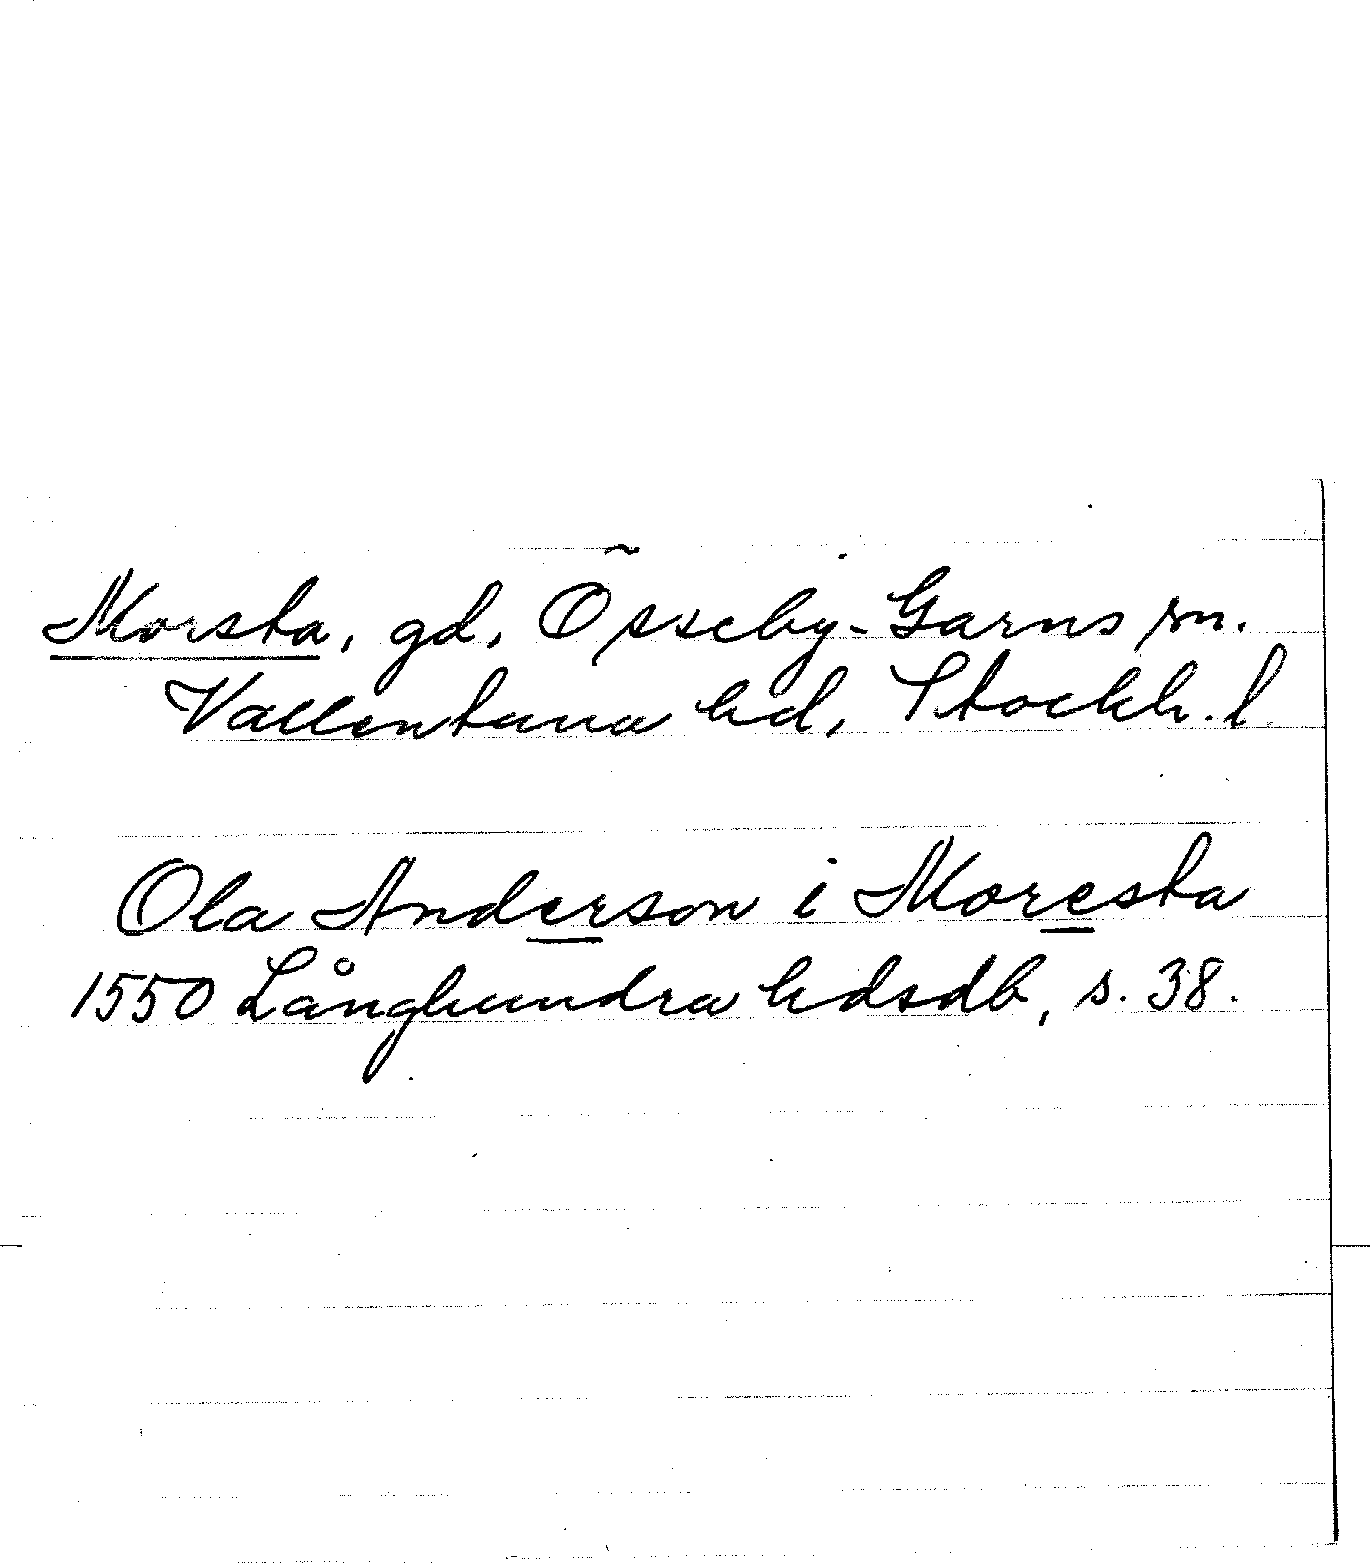 Morsta, gd, Össeby-Garns sn.
Vallentuna hd, Stockh. l.
Ola Anderson i Moresta
1550 Långhundra hdsdb, s. 38.